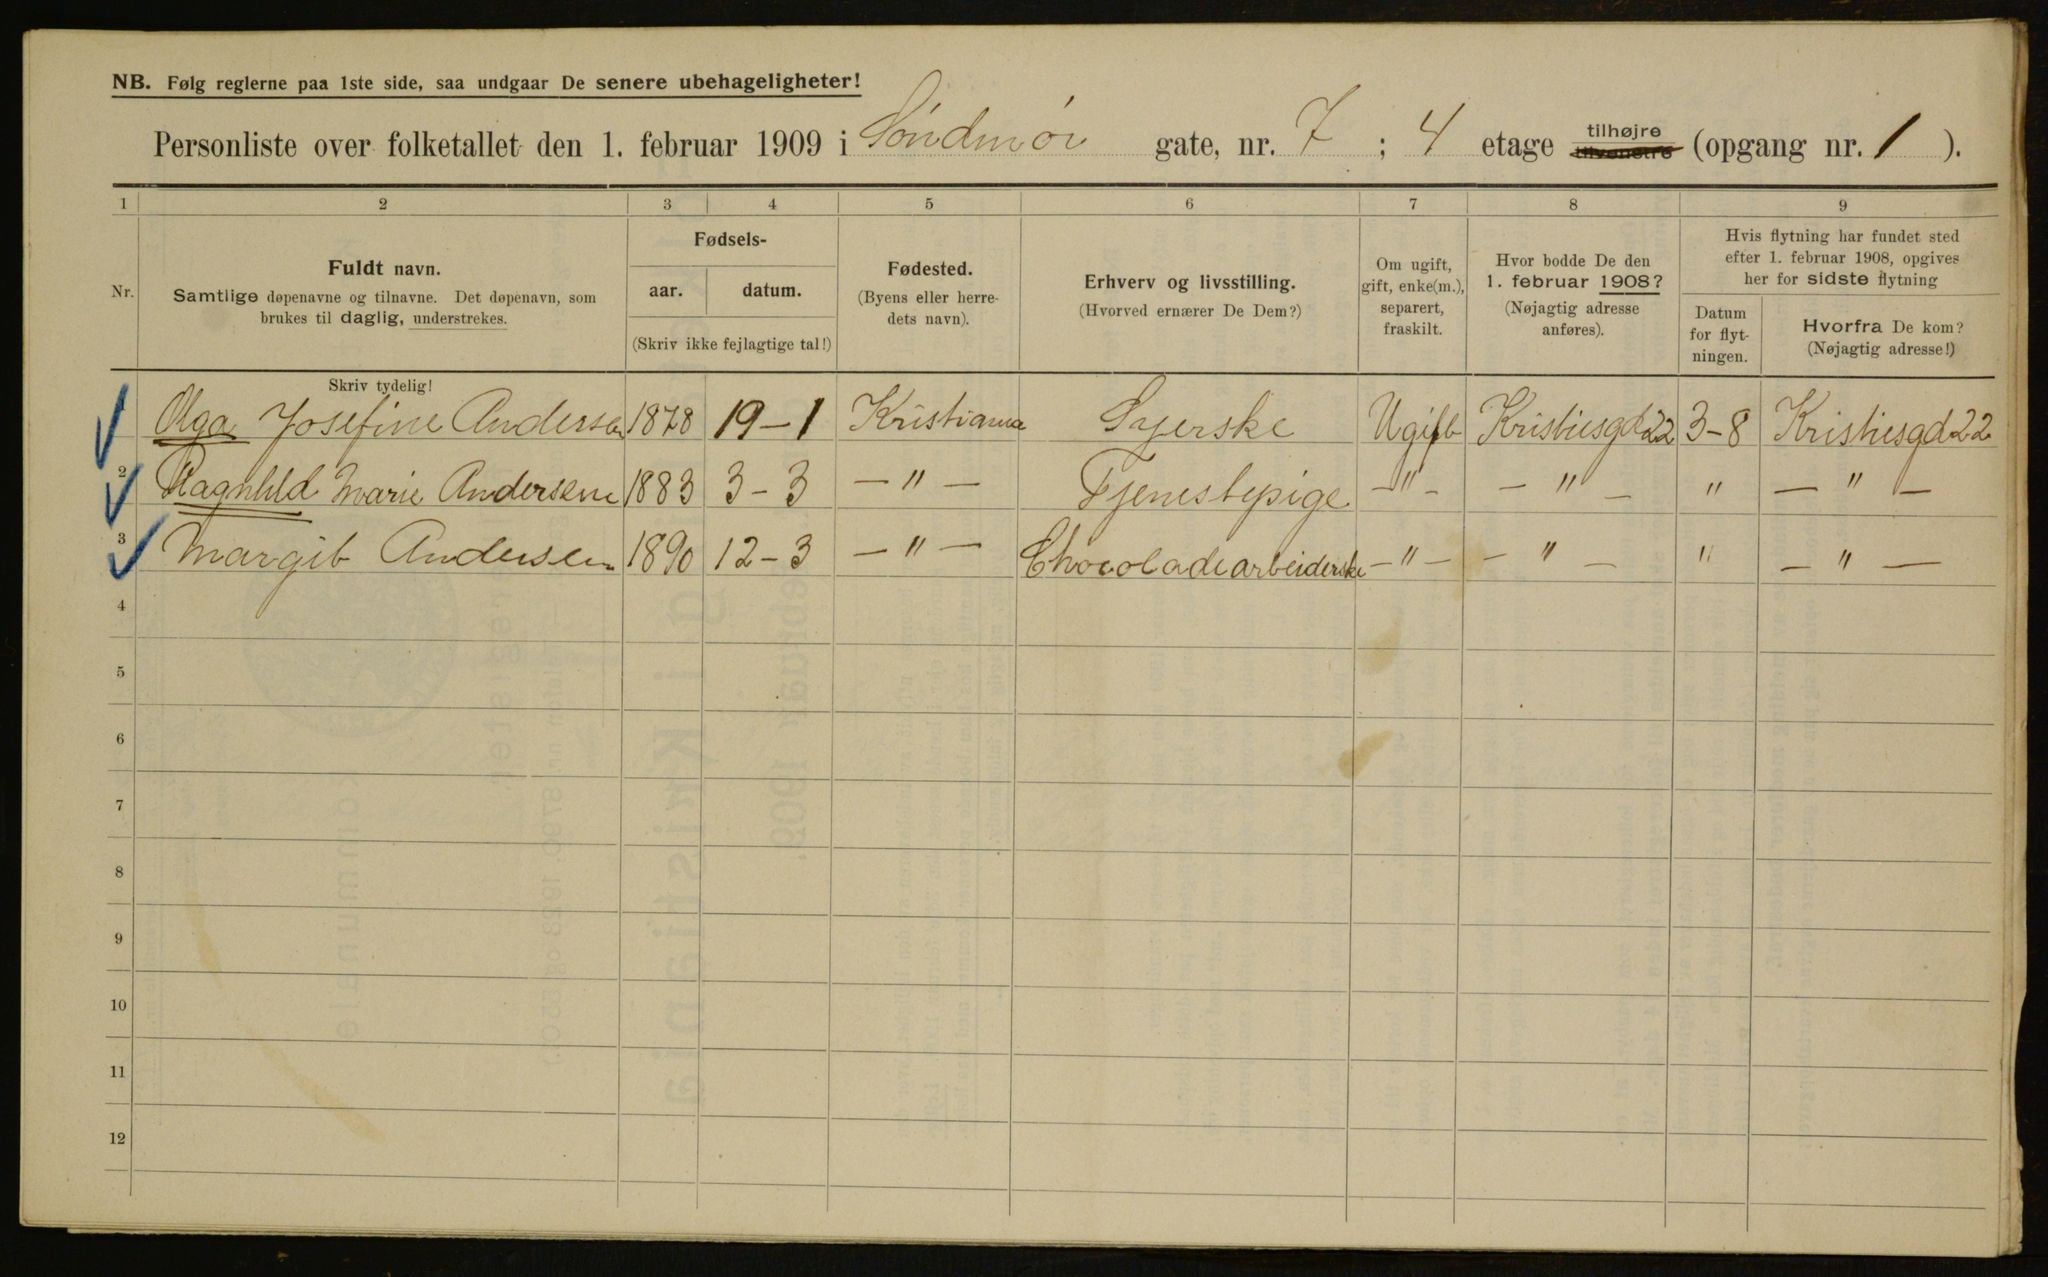 NB. Følg reglerne paa 1ste side, saa undgaar De senere ubehageligheter!
Personliste over folketallet den 1. februar 1909 i Søndmør gate, nr. 7 ; 4 etage tilhøjre tilvenstre (opgang nr. 1 ).
1 2 3 4 5 6 7 8 9
Nr.
Fuldt navn.
Samtlige døpenavne og tilnavne. Det døpenavn, som
brukes til daglig, understrekes.
Skriv tydelig!
Fødsels-
aar. datum.
(Skriv ikke fejlagtige tal!)
Fødested.
(Byens eller herre-
dets navn).
Erhverv og livsstilling.
(Hvorved ernærer De Dem?)
Om ugift,
gift, enke(m.),
separert,
fraskilt.
Hvor bodde De den
1. februar 1908?
(Nøjagtig adresse
anføres).
Hvis flytning har fundet sted
efter 1. februar 1908, opgives
her for sidste flytning
Datum
for flyt-
ningen.
Hvorfra De kom?
(Nøjagtig adresse!)
1 Olga Josefine Andersen 1878 19-1 Kristiania Syerske Ugift Kristiesgd 22 3-8 Kristiesgd 22
2 Ragnhld Marie Andersene 1883 3-3 -"- Tjenestepige -"- -"- " -"-
3 Margit Andersen 1890 12-3 -"- Chocoladearbeiderske -"- -"- " -"-
4
5
6
7
8
9
10
11
12